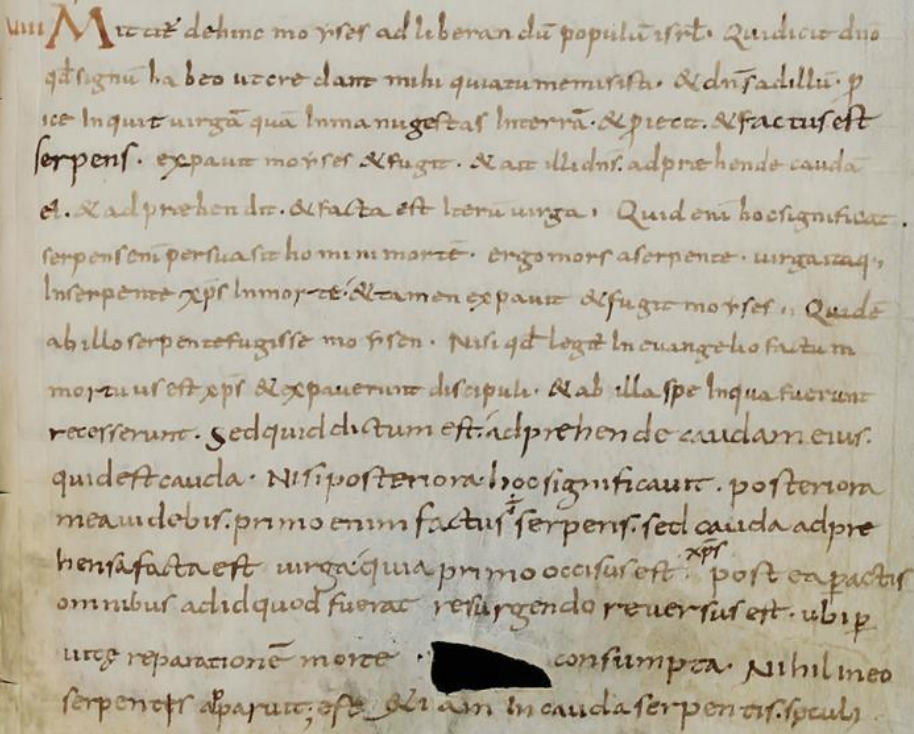 VIIII Mittit' dehinc moyses adliberandū populū isrł. Quidicit dn̄o
qđ signū habeo utcredant mihi quiatumemisisti. &dn̄s adillū. ꝓ
ice inquit uirgā quā inmanugestas interrā. &ꝓiecit. &factus est
serpens. expauit moyses &fugit. &ait illi dn̄s. adpræhende caudā
ei. &adpræhendit. &facta est iterū uirga. Quid eni hocsignificat.
serpens eni persuasit homini mortē. ergo mors aserpente. uirga itaq;
inserpente xp̄s inmorte. &tamen expauit &fugit moyses. Quid ē
abillo serpente fugisse moysen. Nisi qđ legit' in euangelio factum
mortuus est xp̄s &expauerunt discipuli. &ab illa spe inqua fuerunt
recesserunt. Sed quid dictum est. adprehende caudam eius.
quid est cauda. Nisi posteriora. hoc significauit. posteriora
mea uidebis. primo enim factus ÷ serpens. sed cauda adpre
hensa facta est uirga. quia primo occisus est xp̄s. post ea ꝑactis
omnibus adid quod fuerat resurgendo reuersus est. ubi ꝑ
uitę reparationē morte consumpta. Nihil in eo
serpentis apparuit; est &iam in cauda serpentis. sęculi